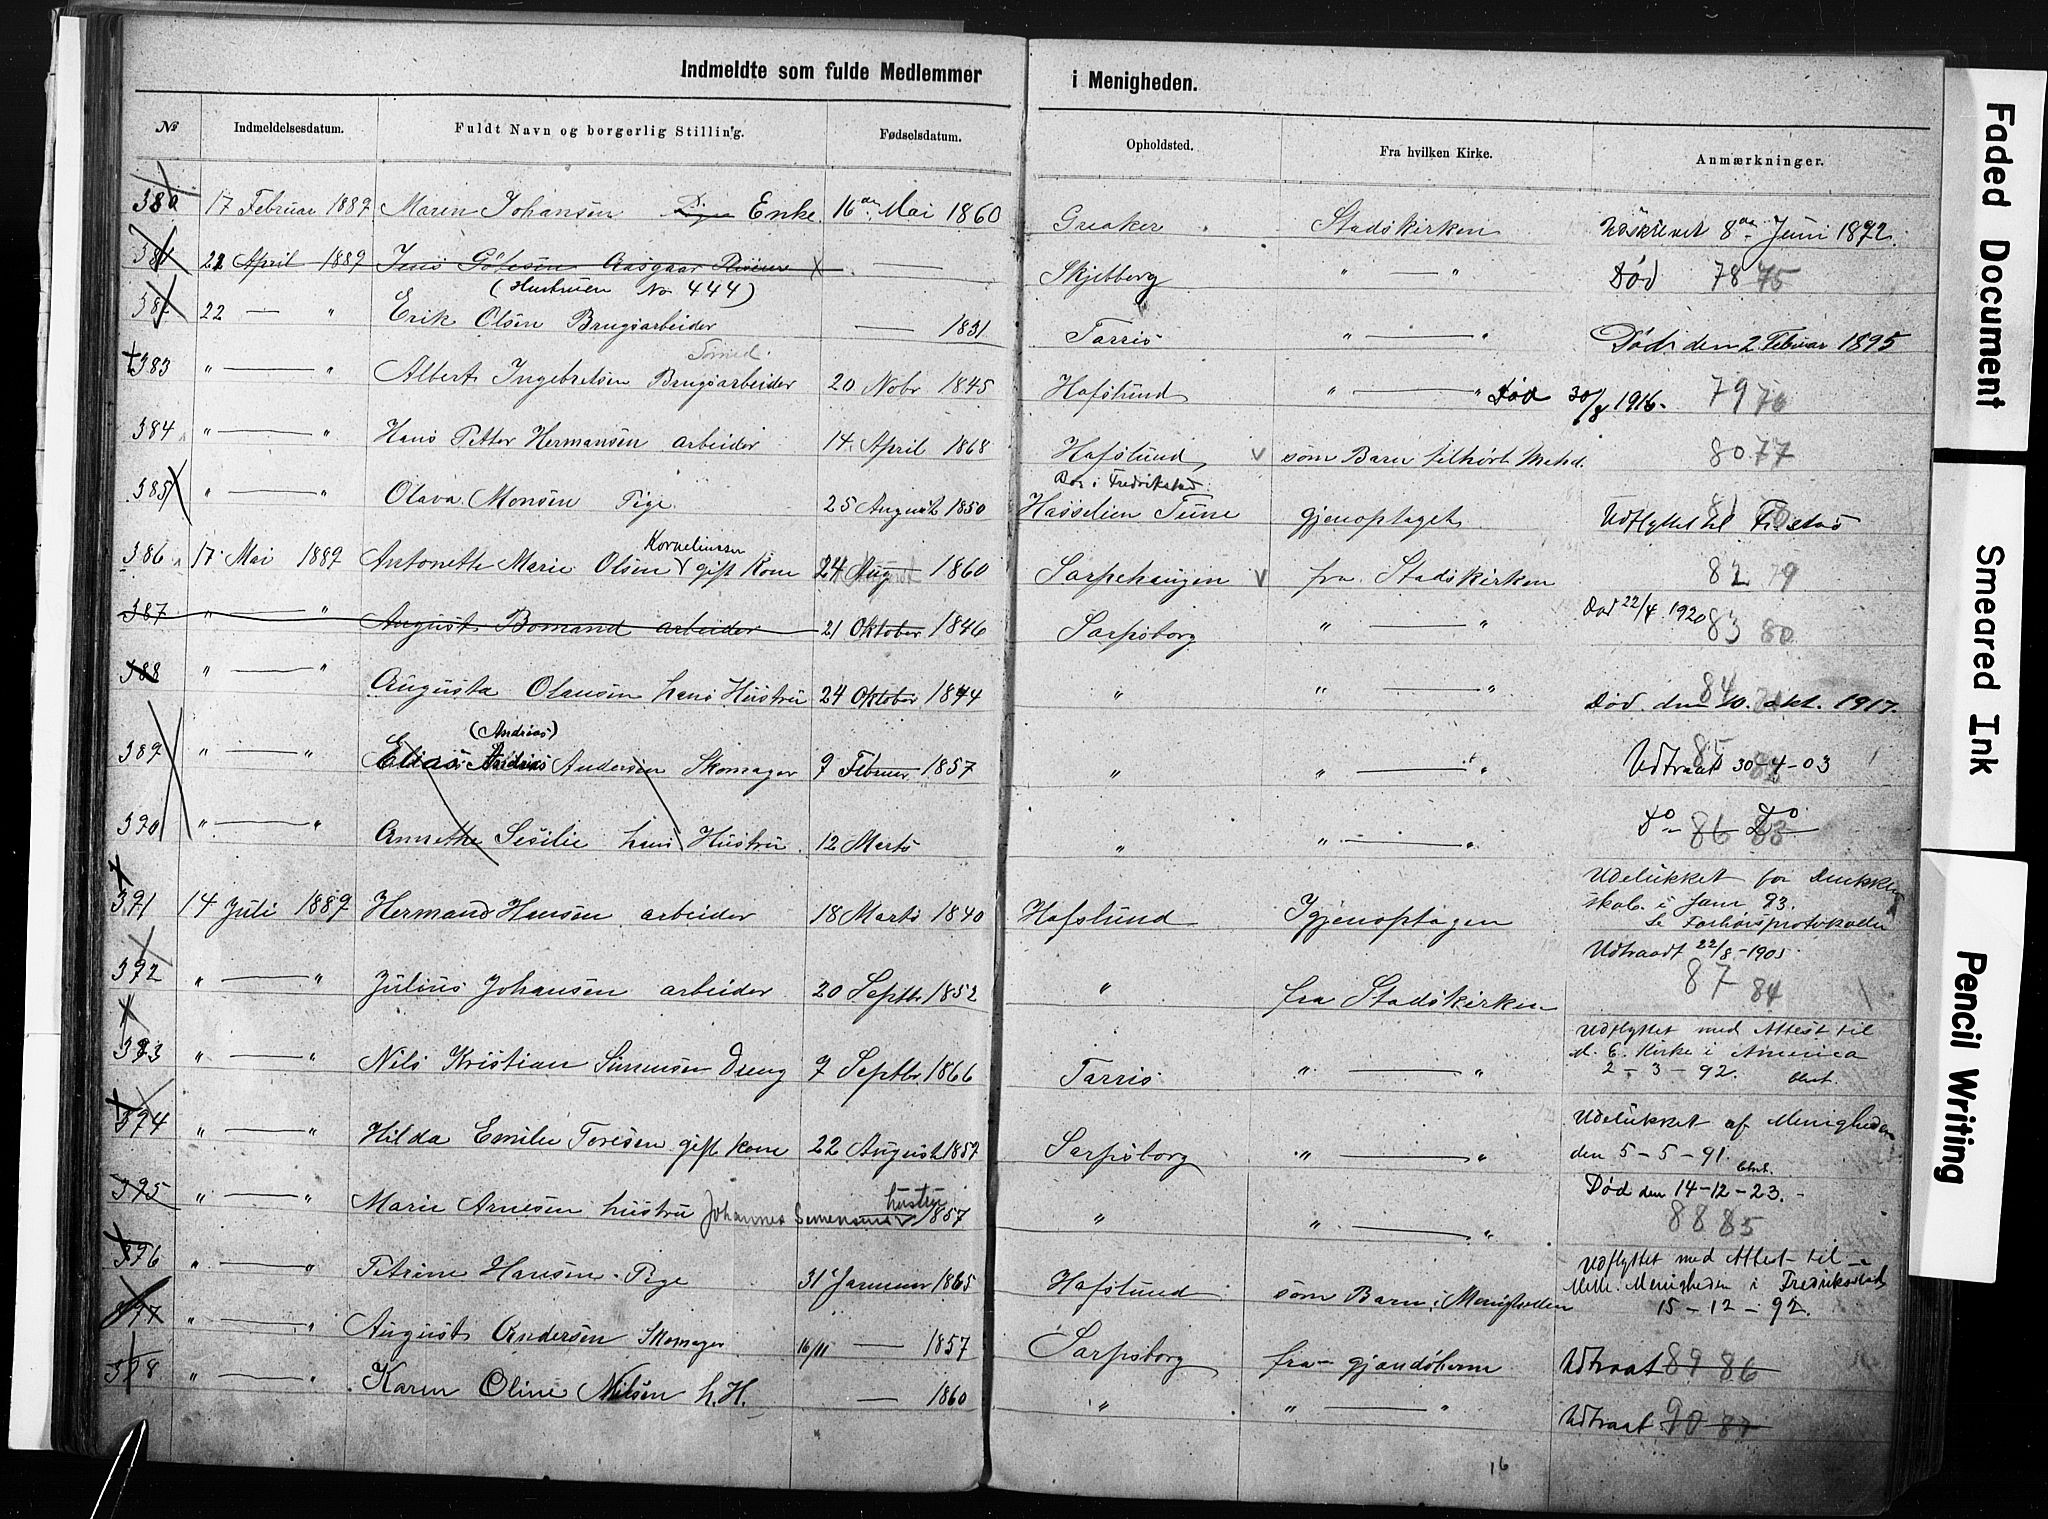 Indmeldte som fulde Medlemmer i Menigheden.
No Indmeldelsesdatum. Fuldt Navn og borgerlig Stilling. Fødselsdatum. Opholdsted. Fra hvilken Kirke. Anmærkninger.
380 17 Februar 1889 Maren Johansen Pige Enke. 16de Mai 1860 Greaker Stadskirken Udskrevet 8de Juni 1892.
381 22 April 1889 Jens Aasgaar x — Skjebberg " — " Død 78 75
(Hustruen No 444)
382 22 — " Erik Olsen Brugsarbeider — 1831 Tarris " — " Død den 2 Februar 1895
Tømed.
383 " — " Albert Ingebretsen Brugsarbeider 20 Nobr 1845 Hafslund " — " Død 30/8 1916. 79 76
384 " — " Hans Petter Hermansen arbeider 14 April 1868 Hafslund v som Barn tilhørt Methd. 80 77
Bor i Fredrikstad
385 " — " Olava Monsen Pige 25 August 1850 Hasselien Tune gjenoptaget Udflyttet til
Korneliussen
386 17 Mai 1889 Antonette Marie Olsen gift Kone 24 Aug 1860 Sarpehaugen v fra Stadskirken 82 79
387 " — " August Bomand arbeider 21 Oktober 1846 Sarpsborg " — " Død 22/4 1920 83 80
388 " — " Augusta Olausen hans Hustru 24 Oktober 1844 " " — " 84 Død den 10. okt. 1917.
(Andrias)
389 " — " Elias Andrias Andersen Skomager 9 Februar 1857 " " — " 85 Udtraat 30-4-03
390 " — " Annethe Sesilie hans Hustru 12 Marts " " — " Do 86 83 Do
391 14 Juli 1889 Hermand Hansen arbeider 18 Marts 1840 Hafslund Igjenoptagen Udelukket for Drukken
skab i Janr 93.
Se Forhørsprotokollen
392 " — " Julius Johansen arbeider 20 Septbr 1852 " fra Stadskirken Udtraadt 22/8-1905
87 84
393 " — " Nils Kristian Simensen Dreng 9 Septbr 1866 Tarris " — " Udflyttet med Attest til
d. E. Kirke i America
2-3-92.
394 " — " Hilda Emilie Toresen gift kone 22 August 1857 Sarpsborg " — " Udelukket af Menigheden
den 5-5-91.
395 " — " Marie Arnesen hustru Johannes Simensens hustru 1857 " " — " Død den 14-12-23.
88 85
396 " — " Petrine Hansen Pige 31 Januar 1865 Hafslund som Barn i Menigheden Udflyttet med Attest til
Meth. Menigheden i Fredrikstad
15-12-92.
397 " — " August Andersen Skomager 16/11 — 1857 Sarpsborg fra gjendøberne Udtraat 89 86
398 " — " Karen Oline Nilsen h.H. — 1860 " " — " Udtraat 90 87
16
Faded Document
Smeared Ink
Pencil Writing